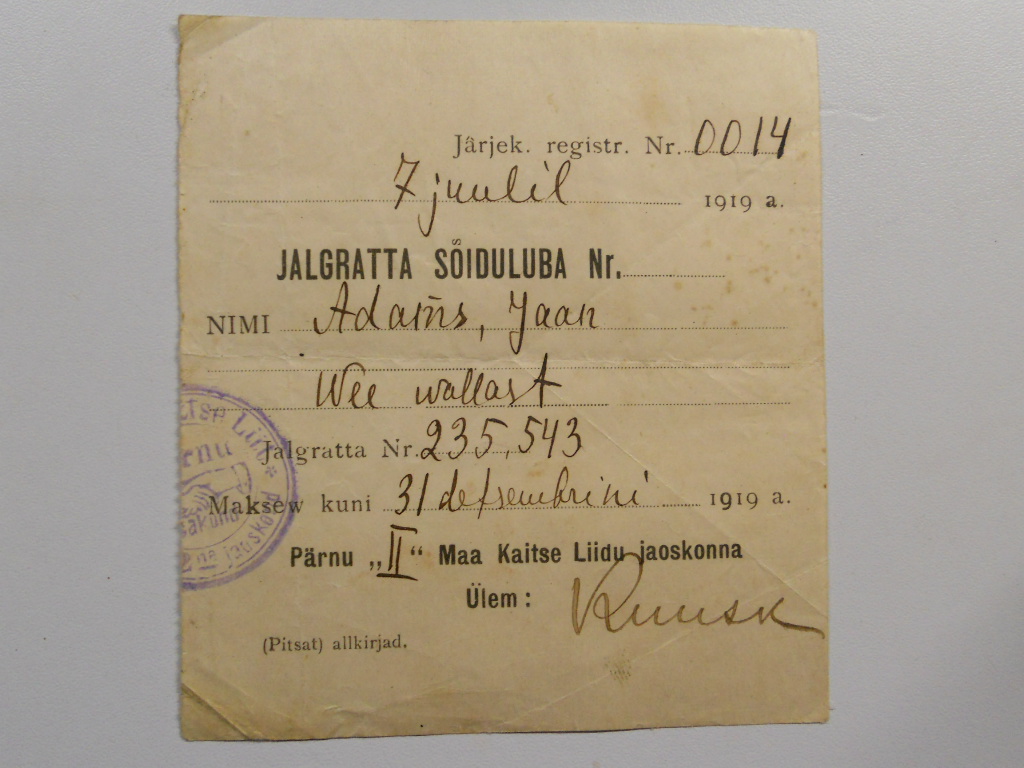 Järjek. registr. Nr. 0014
7 juulil 1919 a.
JALGRATTA SÕIDULUBA Nr.
NIMI Adams, Jaan
Wee wallast
Jalgratta Nr. 235,543
Maksew kuni 31 detsembrini 1919 a.
Pärnu „II“ Maa Kaitse Liidu jaoskonna
Ülem: Kuusk
(Pitsat) allkirjad.